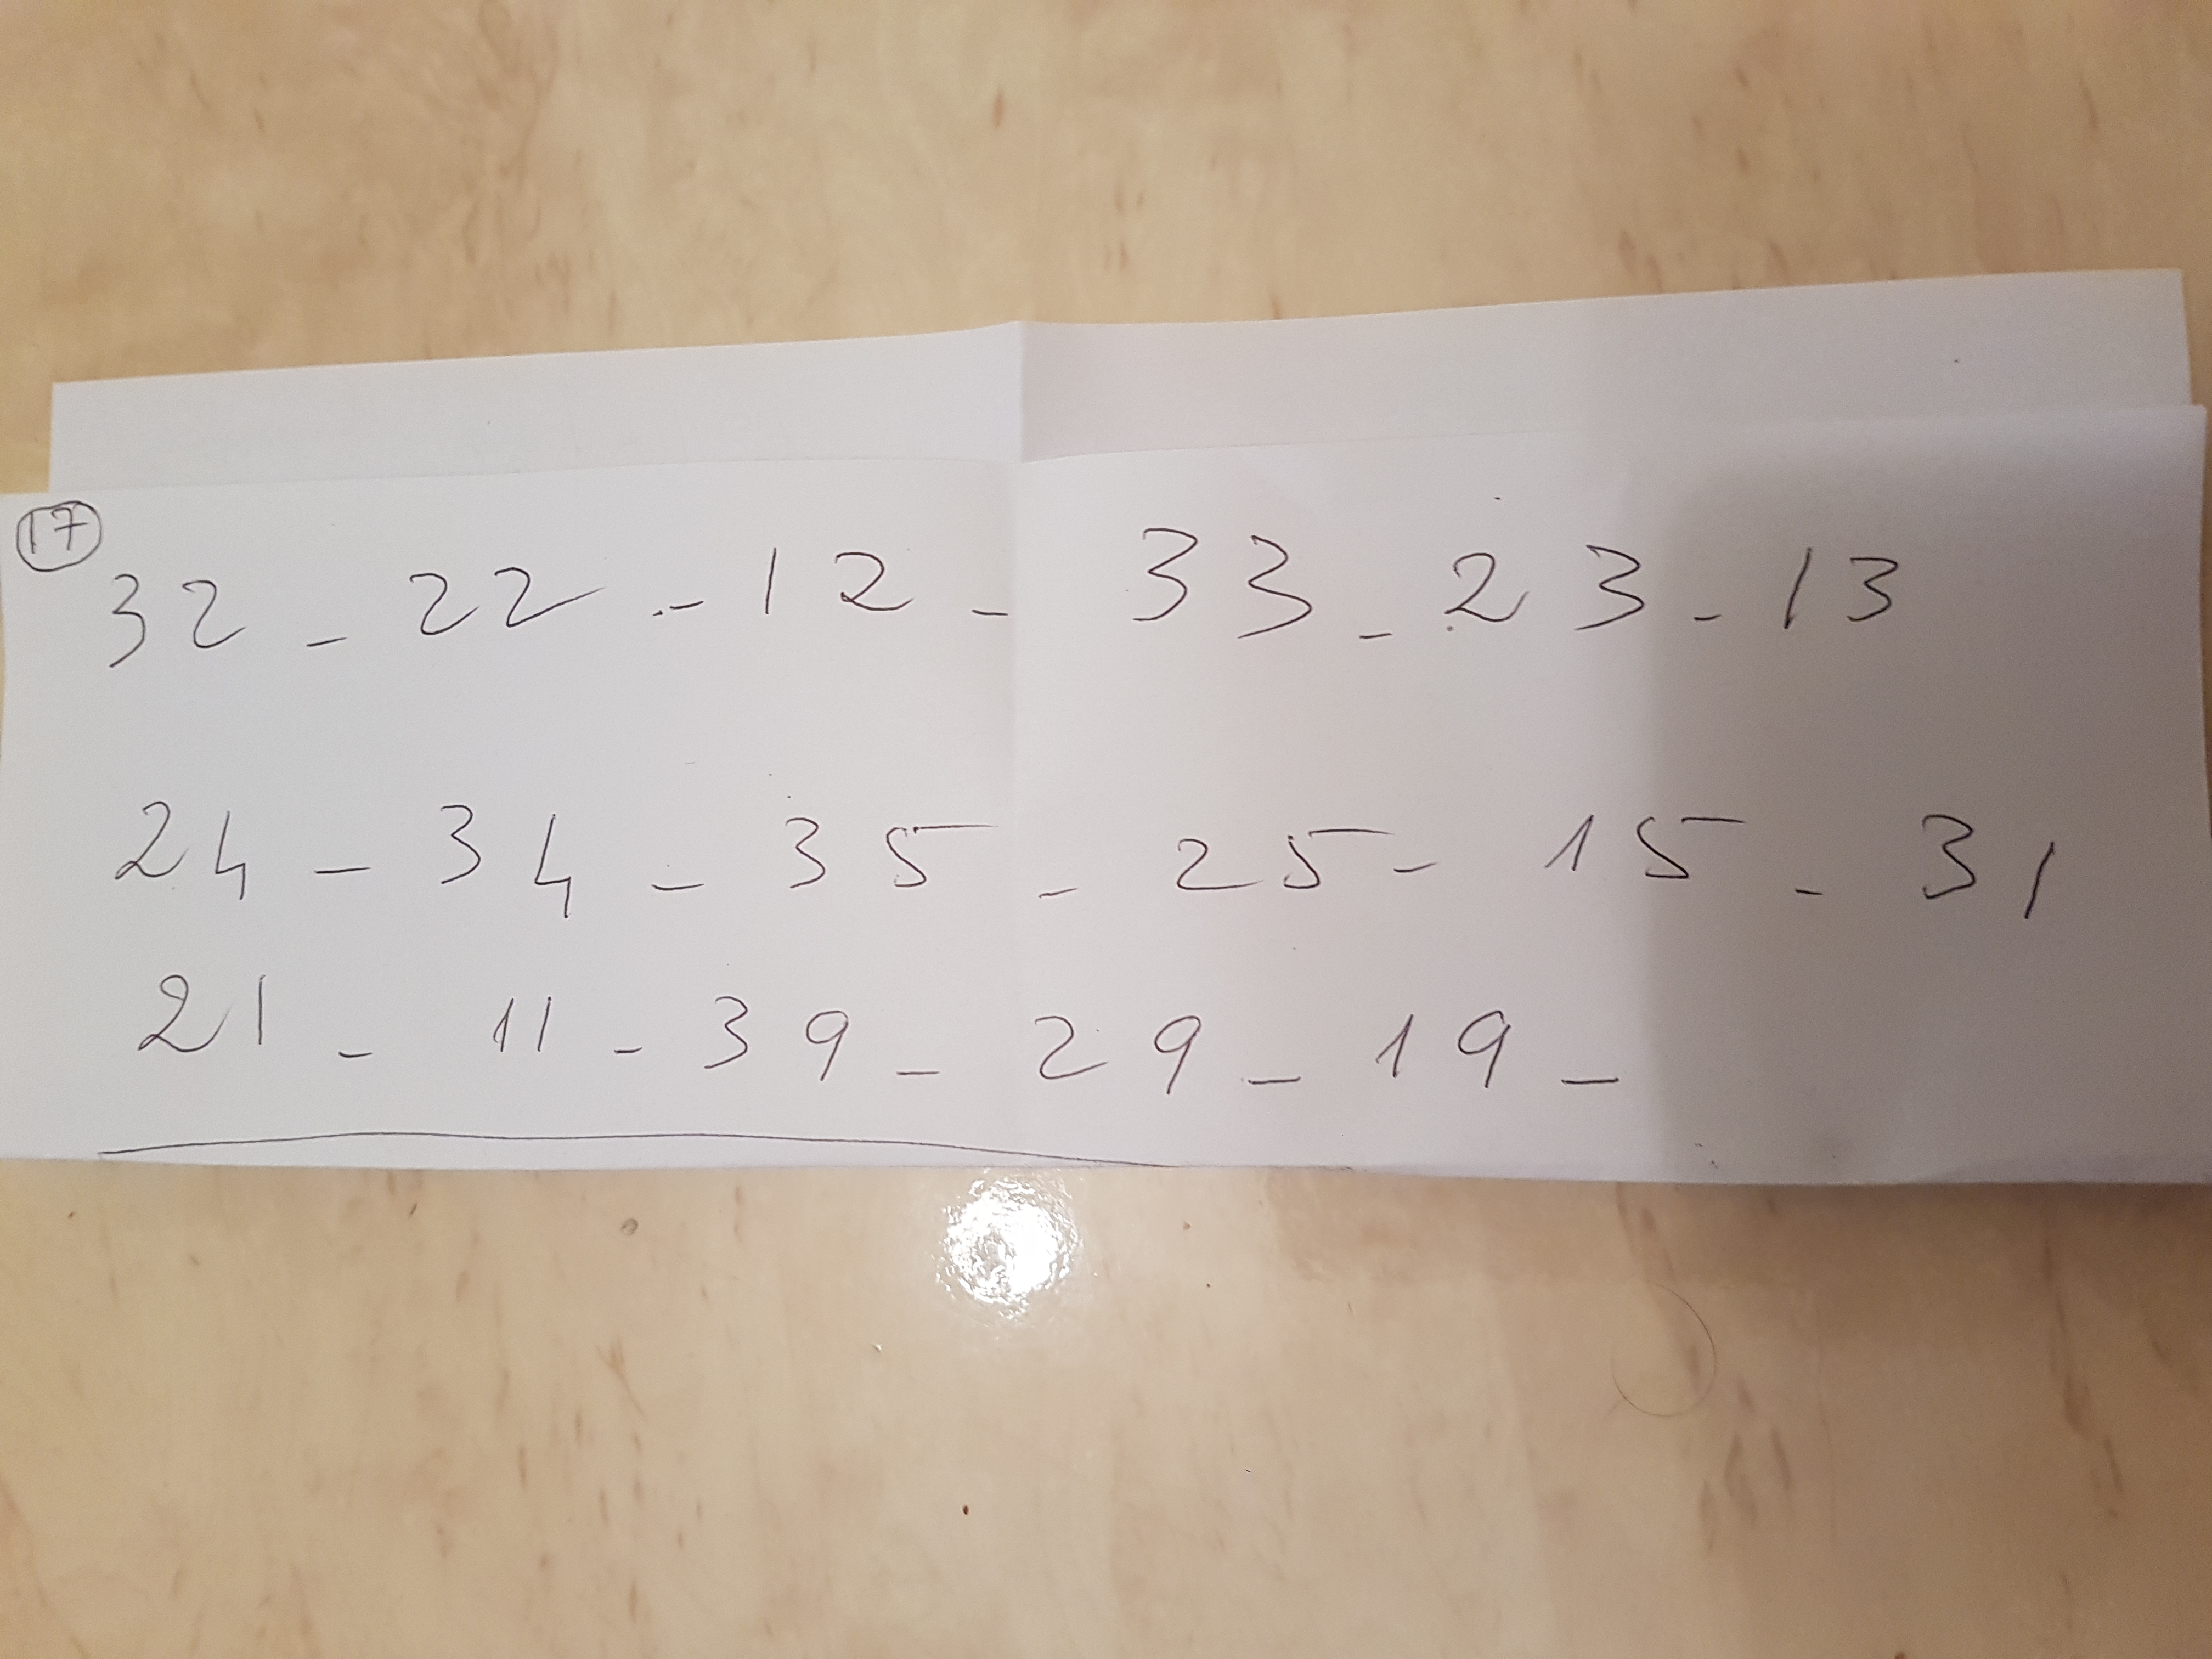 17
32 - 22 - 12 - 33 - 23 - 13
24 - 34 - 35 - 25 - 15 - 31
21 - 11 - 39 - 29 - 19 -